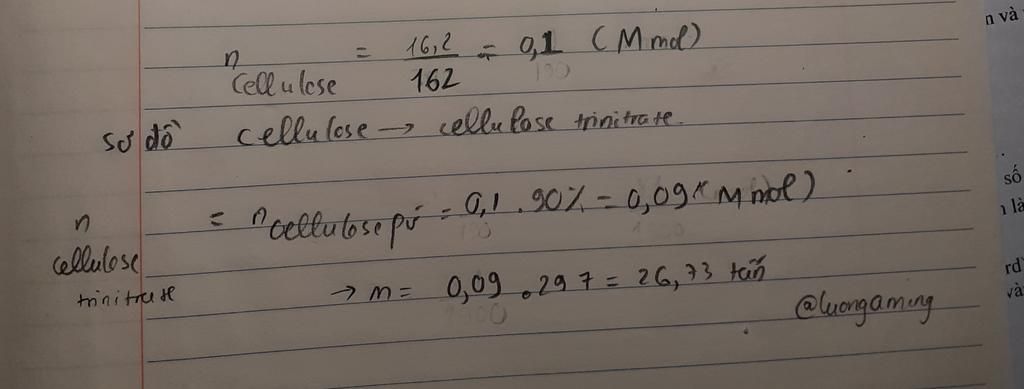 n cellulose = 16,2/162 = 0,1 (M mol)
sơ đồ cellulose → cellulose trinitrate.
n cellulose trinitrate = n cellulose pứ = 0,1 . 90% = 0,09 (M mol)
→ m = 0,09 . 297 = 26,73 tấn
@luongaming
n và
số
là
rd
và